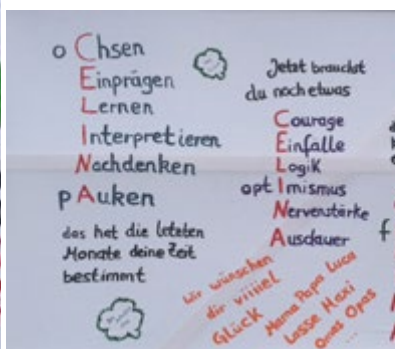 o Chsen
Einprägen
Lernen
Interpretieren
Nachdenken
pAuken
das hat die letzten
Monate deine Zeit
bestimmt
Jetzt brauchst
du noch etwas
Courage
Einfälle
Logik
optImismus
Nervenstärke
Ausdauer
Wir wünschen
dir viiiiel
GLÜCK
Mama Papa Luca
Lasse Maxi
Omas Opas
...